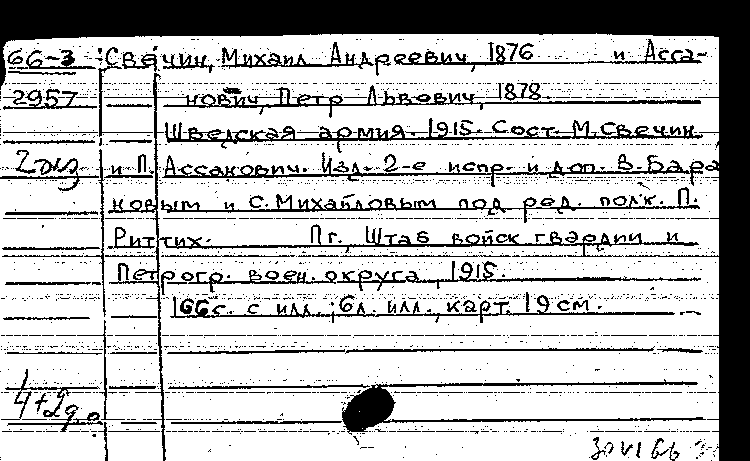 66-3 Свечин, Михаил Андреевич, 1876 и Асса-
2957 нович, Петр Львович, 1878.
Шведская армия. 1915. Сост. М. Свечин
2 экз и П. Ассанович. Изд. 2-е испр. и доп. В. Бара
новым и С. Михайловым под ред. полк. П.
Риттих. Пг., Штаб войск гвардии и
Петрогр. воен. округа, 1915.
166с. с илл.; 6л. илл., карт. 19 см.
4+2д.о.
30 VI 66